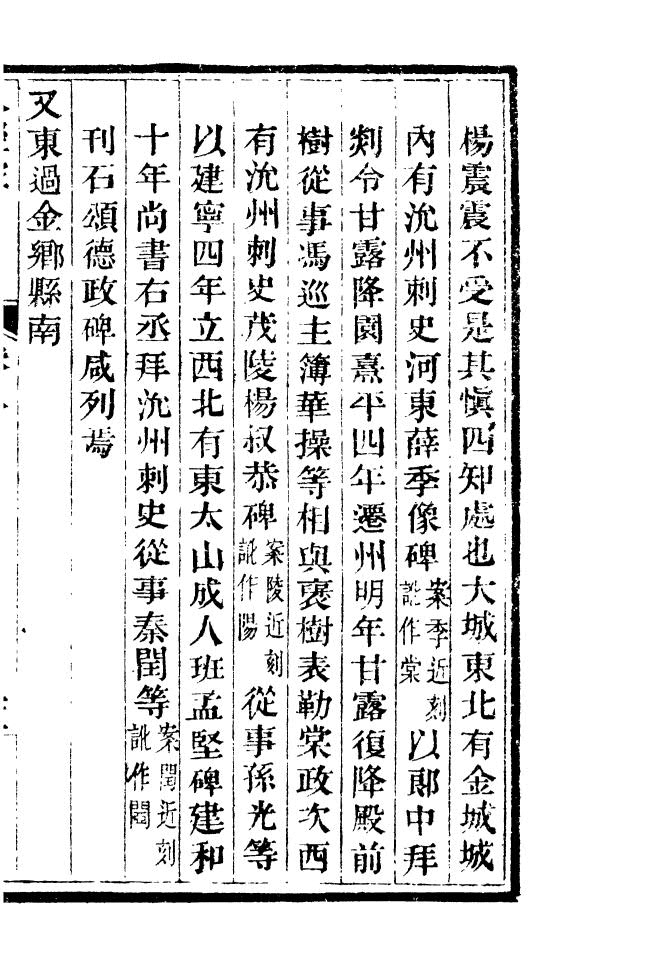 楊震震不受是其慎四知處也大城東北有金城城
內有沇州刺史河東薛季像碑案季近刻訛作棠以郎中拜
剡令甘露降園熹平四年遷州明年甘露復降殿前
樹從事馮巡主簿華操等相與褒樹表勒棠政次西
有沇州刺史茂陵楊叔恭碑案陵近刻訛作陽從事孫光等
以建寧四年立西北有東太山成人班孟堅碑建和
十年尚書右丞拜沇州刺史從事秦閏等案閏近刻訛作閏
刊石頌德政碑咸列焉
又東過金鄉縣南